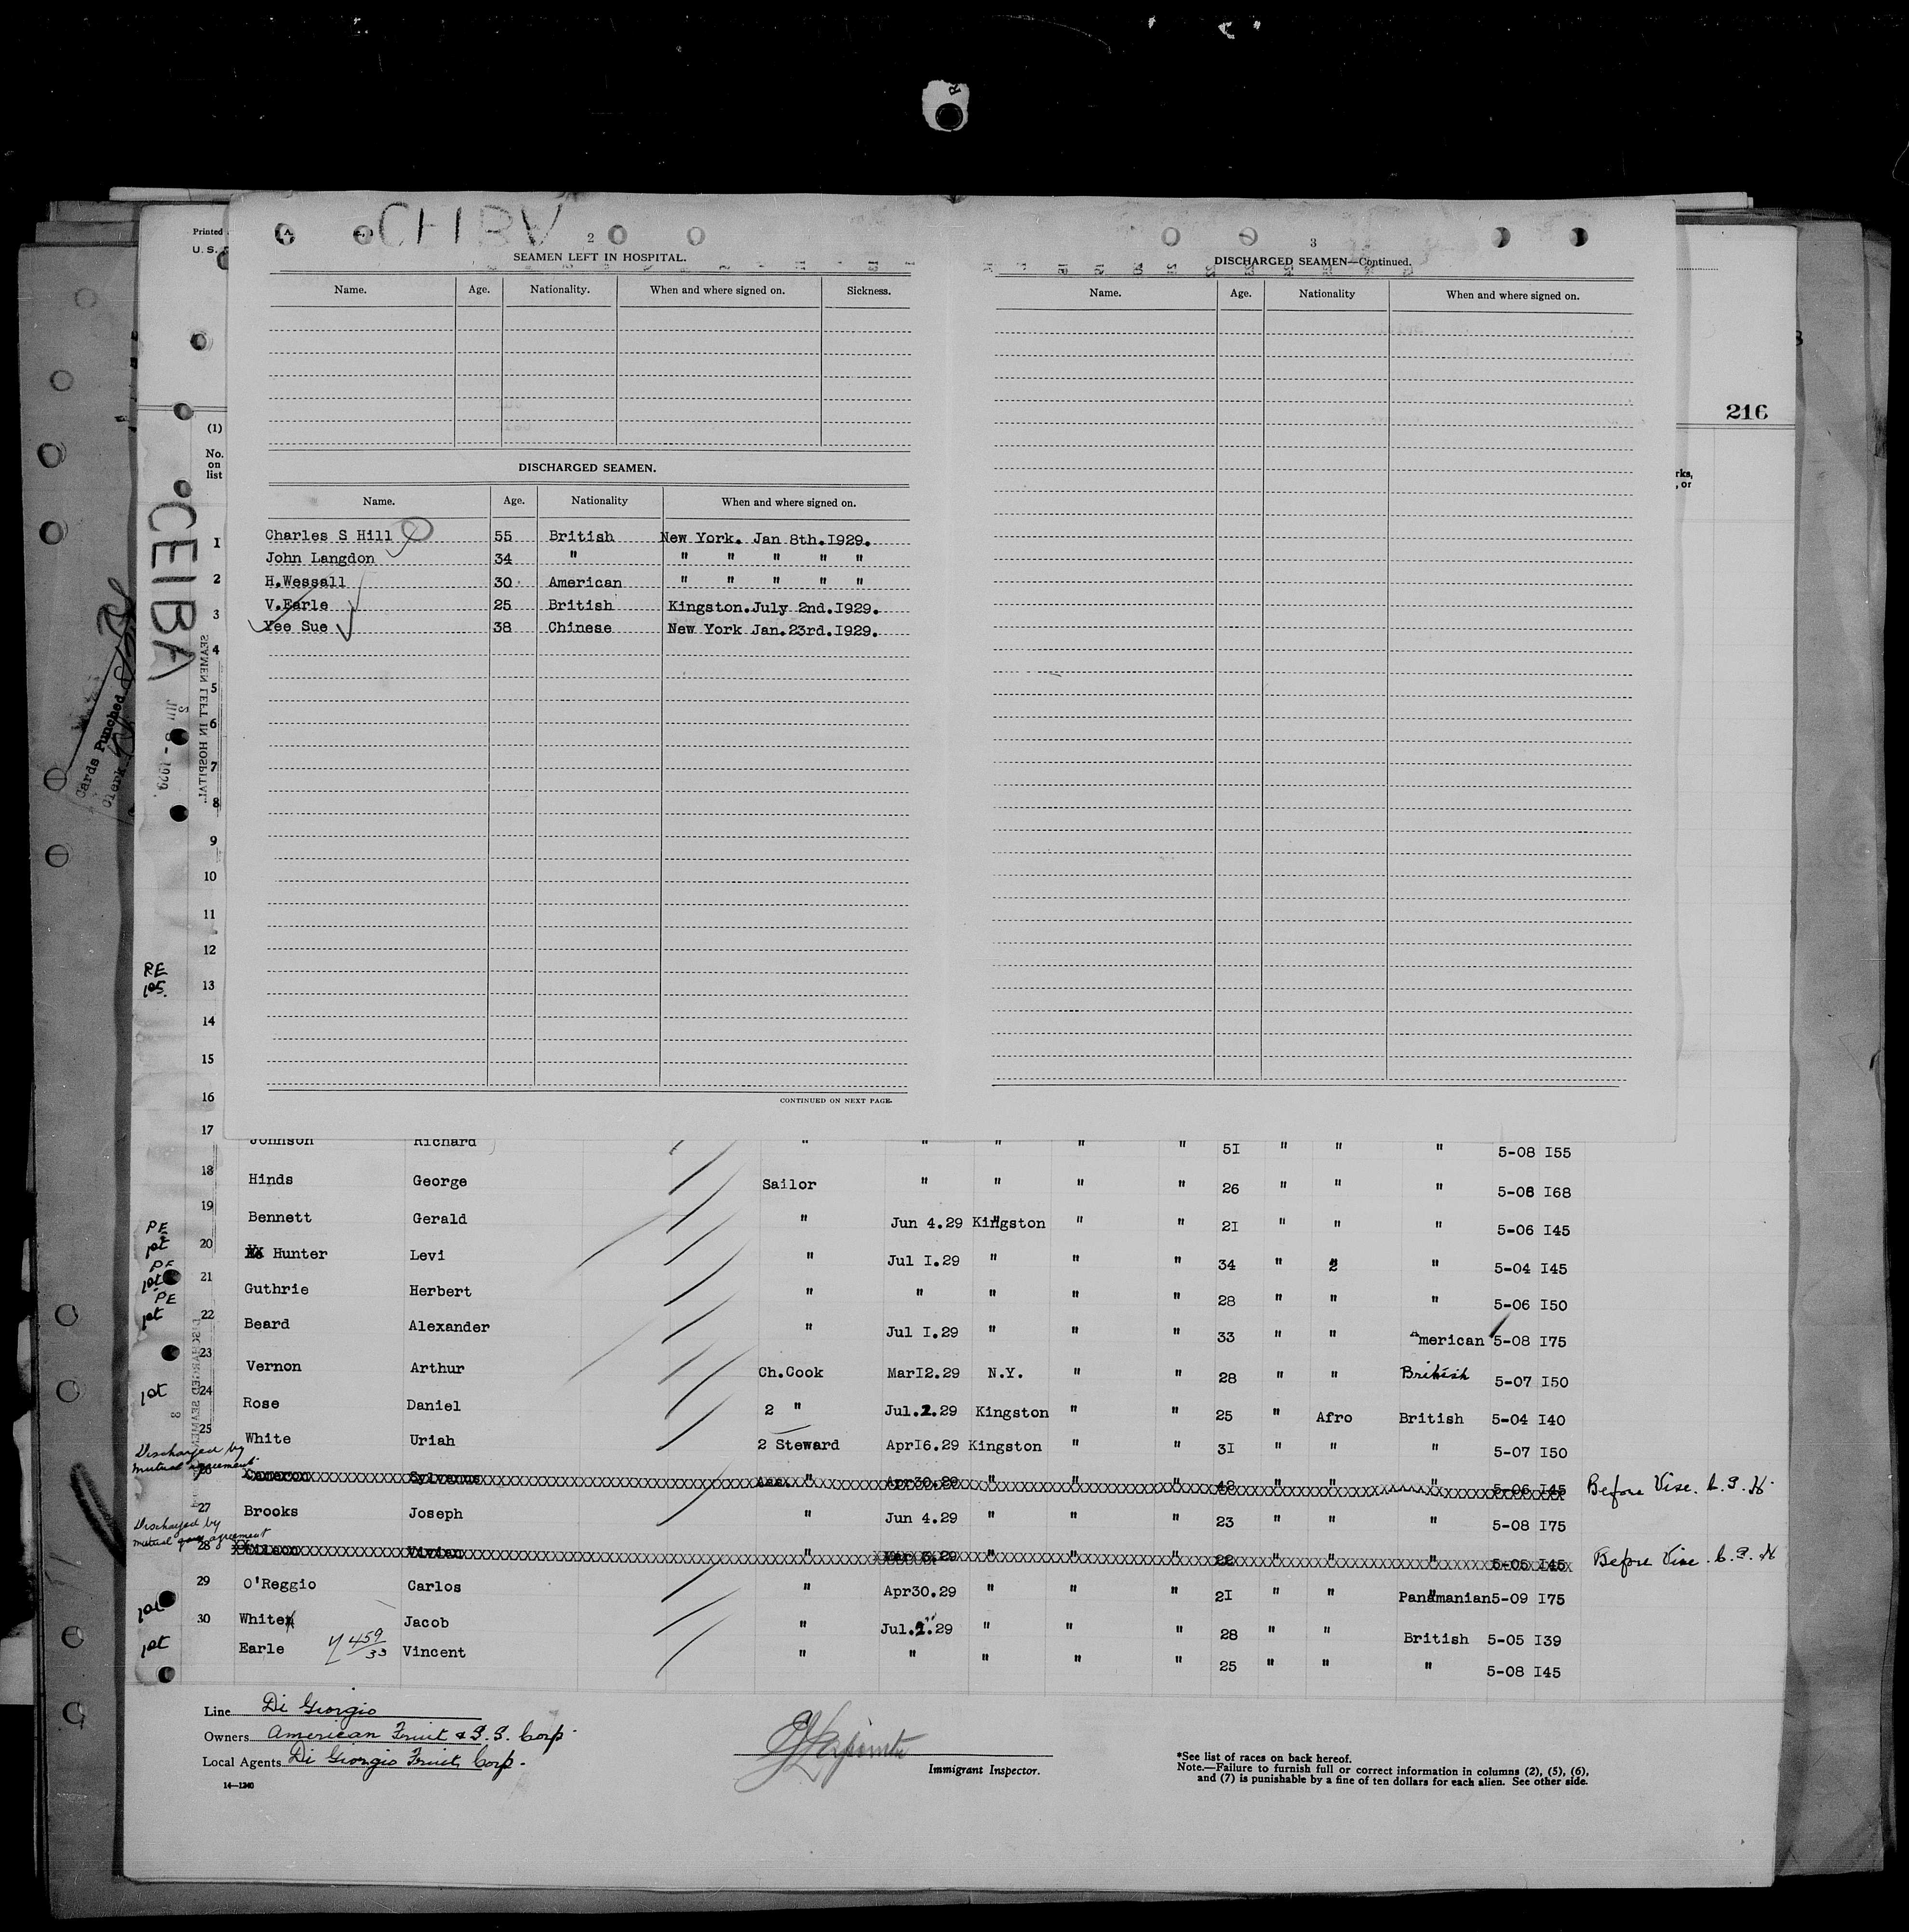 CHIBA
Printed
U. S.
2
SEAMEN LEFT IN HOSPITAL.
Name. Age. Nationality. When and where signed on. Sickness.
DISCHARGED SEAMEN.
Name. Age. Nationality When and where signed on.
Charles S Hill 55 British New York. Jan 8th.1929.
John Langdon 34 " " " " " "
H.Wessall 30 American " " " " "
V.Earle 25 British Kingston.July 2nd.1929.
Yee Sue 38 Chinese New York Jan.23rd.1929.
CONTINUED ON NEXT PAGE.
3
DISCHARGED SEAMEN—Continued.
Name. Age. Nationality When and where signed on.
216
rks,
, or
(1)
No.
on
list
1
2
3
4
5
6
7
8
9
10
11
12
13
14
15
16
CEIBA
SEAMEN LEFT IN HOSPITAL.
1929
Cards Punched
Clerk
RE
1st.
17 Johnson Richard " " " " " 51 " " " 5-08 I55
18 Hinds George Sailor " " " " 26 " " " 5-08 I68
19 Bennett Gerald " Jun 4.29 Kingston " " 21 " " " 5-06 I45
PE
1st
20 Hunter Levi " Jul I.29 " " " 34 " " " 5-04 I45
PE
1st
21 Guthrie Herbert " " " " " 28 " " " 5-06 I50
PE
1st
22 Beard Alexander " Jul I.29 " " " 33 " " American 5-08 I75
23 Vernon Arthur Ch.Cook MarI2.29 N.Y. " " 28 " " British 5-07 I50
1st
24 Rose Daniel 2 " Jul.2.29 Kingston " " 25 " Afro British 5-04 I40
25 White Uriah 2 Steward AprI6.29 Kingston " " 3I " " " 5-07 I50
Discharged by
mutual agreement
26 Cameron Sylvanus Ass. " Apr30.29 " " " 48 " " " 5-06 I45 Before Vise. C. G. K.
27 Brooks Joseph " Jun 4.29 " " " 23 " " " 5-08 I75
Discharged by
mutual agreement
28 Wilson Vivian " Mar 5.29 " " " 22 " " " 5-05 I45 Before Vise. C. G. K
29 O'Reggio Carlos " Apr30.29 " " " 2I " " Panamanian 5-09 I75
1st
30 White Jacob " Jul.2.29 " " " 28 " " British 5-05 I39
1st
Earle 459/33 Vincent " " " " " 25 " " " 5-08 I45
Line Di Giorgio
Owners American Fruit & S.S. Corp.
Local Agents Di Giorgio Fruit Corp.
14—1240
Immigrant Inspector.
*See list of races on back hereof.
Note.—Failure to furnish full or correct information in columns (2), (5), (6),
and (7) is punishable by a fine of ten dollars for each alien. See other side.